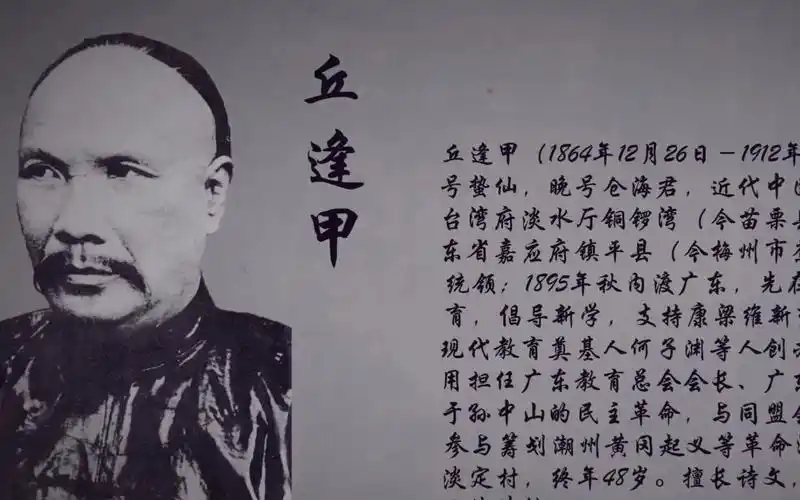 丘逢甲
丘逢甲（1864年12月26日－1912年
号蛰仙，晚号仓海君，近代中
台湾府淡水厅铜锣湾（今苗栗
东省嘉应府镇平县（今梅州市
统领；1895年秋内渡广东，先在
育，倡导新学，支持康梁维新
现代教育奠基人何子渊等人创
用担任广东教育总会会长、广
于孙中山的民主革命，与同盟
参与筹划潮州黄冈起义等革命
淡定村，终年48岁。擅长诗文，